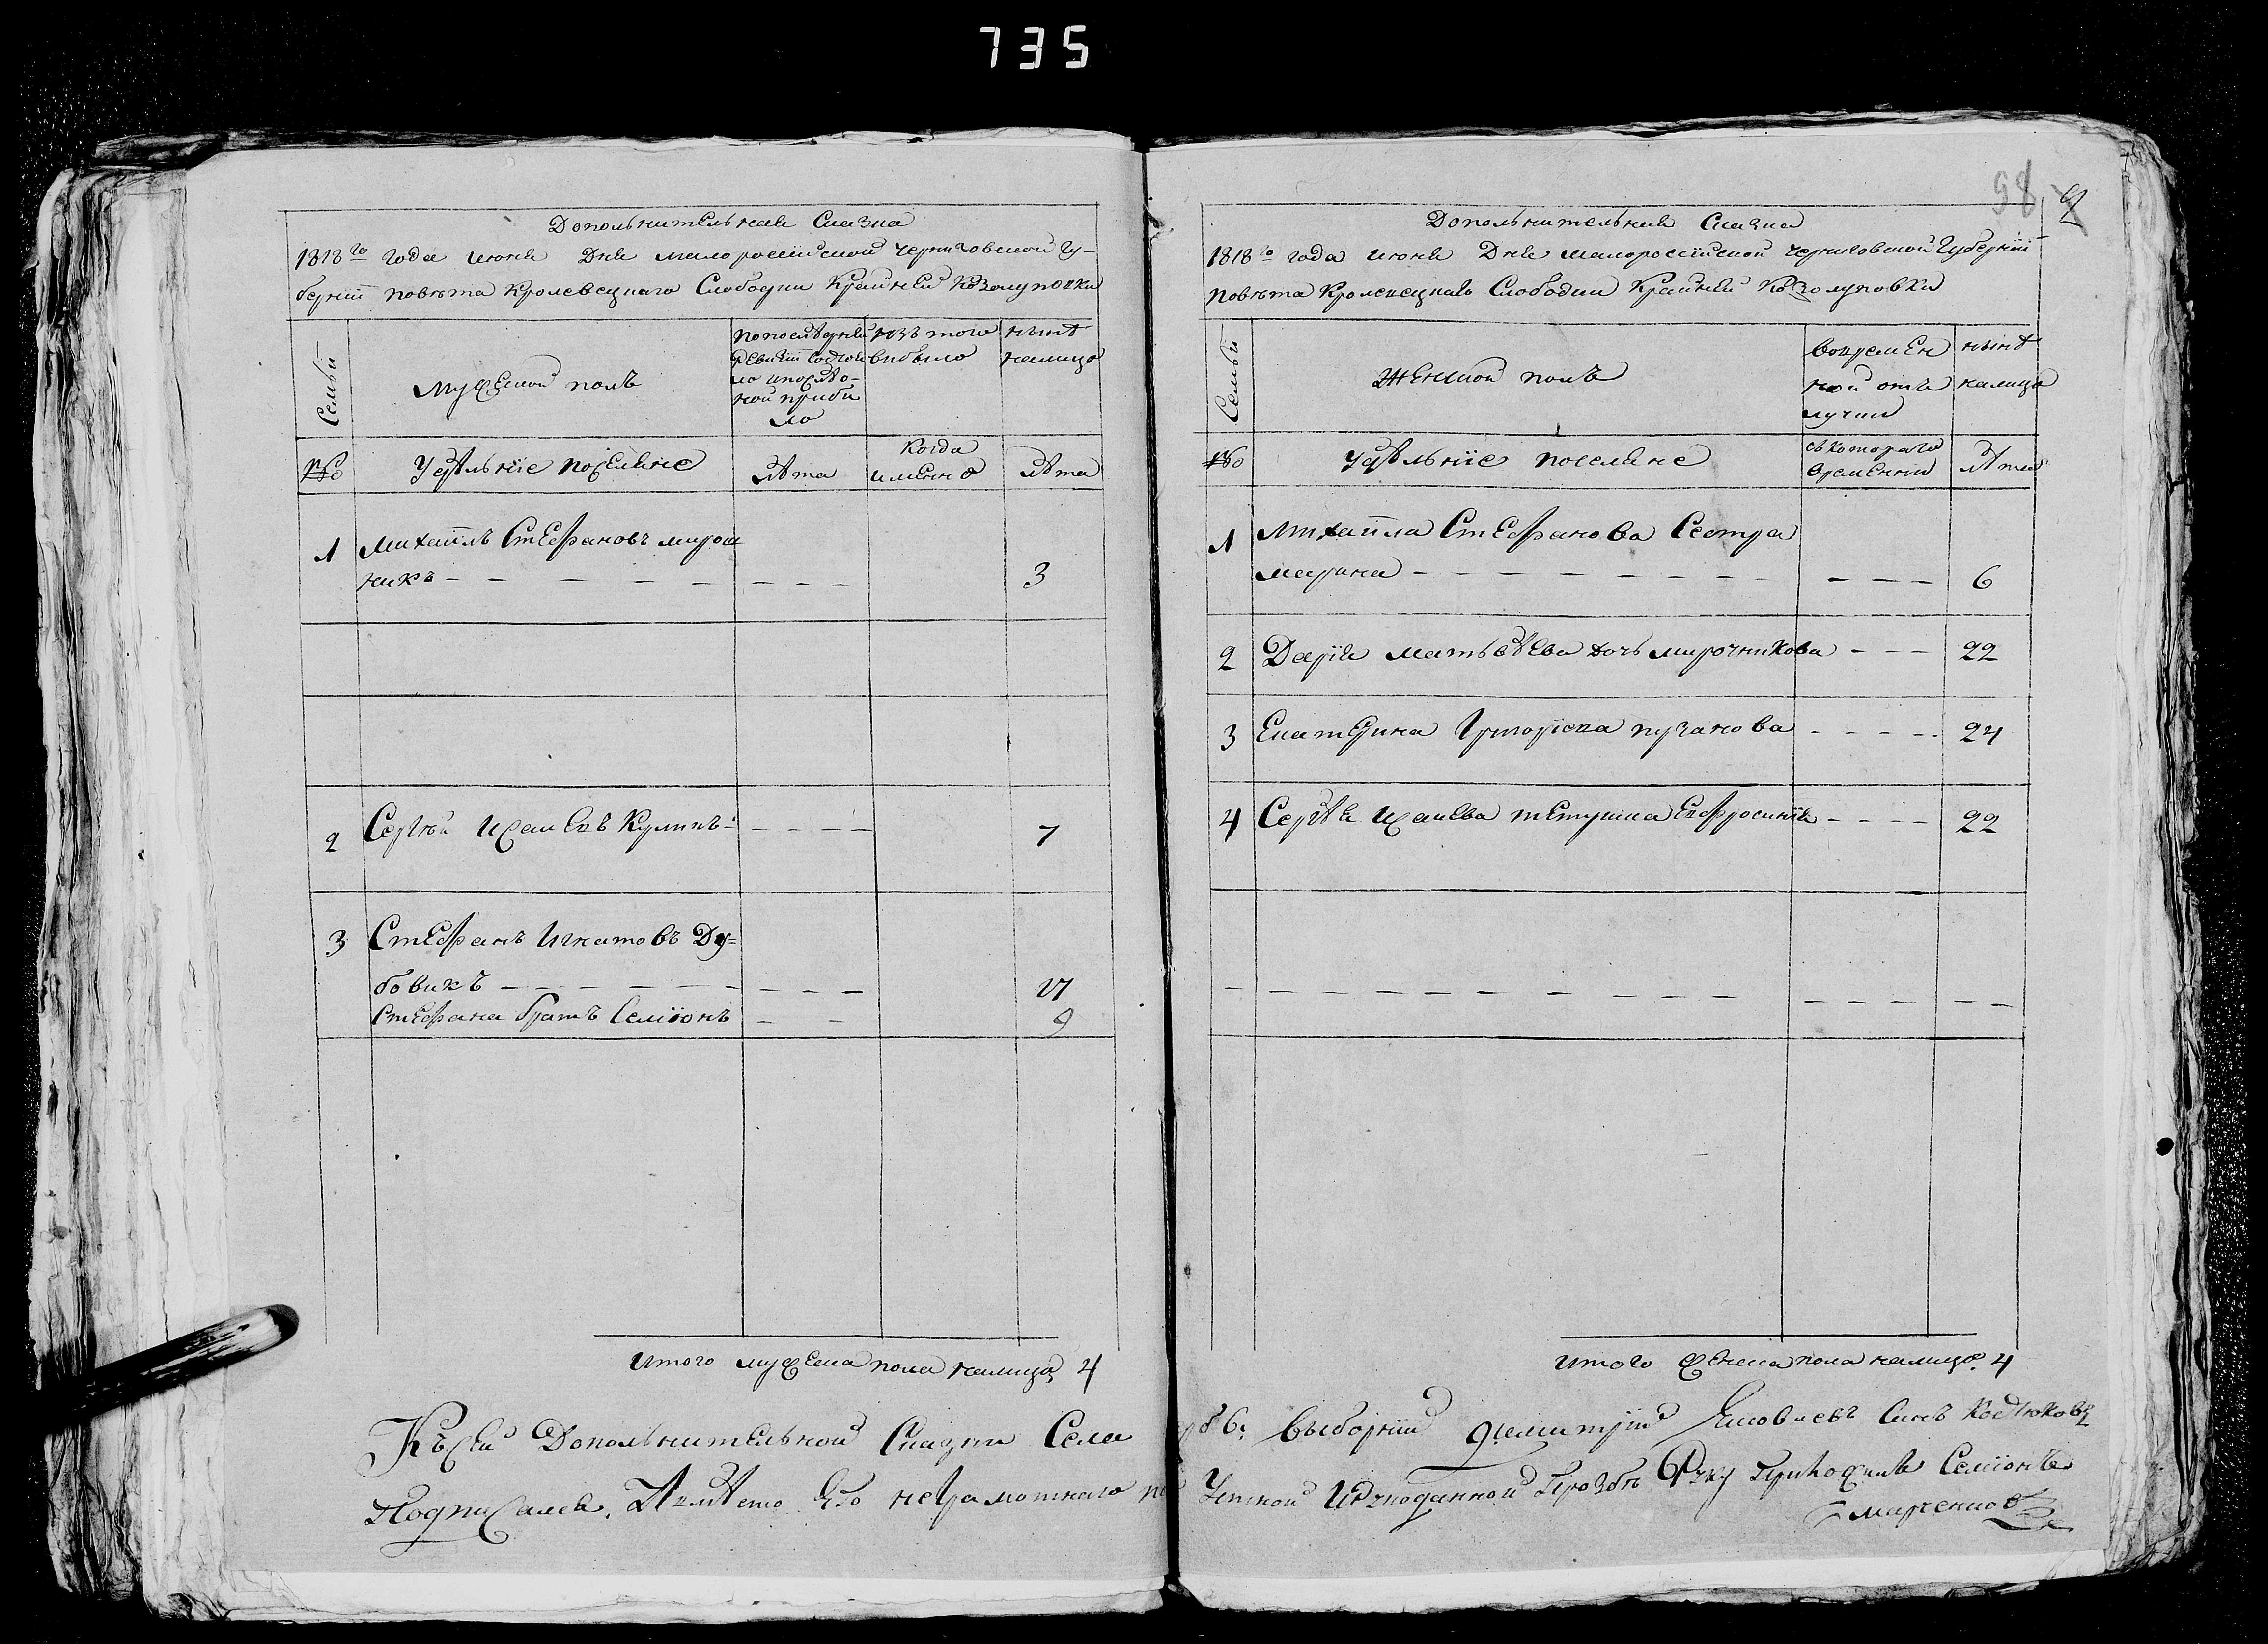 735
Дополнительная Сказка
1818го года июня Дня малороссійской черниговской Гу-
берніи повѣта Кролевецкаго Слободки Крайней Козолуповки
Семьи
мужеской полъ
по последней ревизіи состоя-
ло и после о-
ной прибы
ло
изъ того
выбыло
нынѣ
налицо
№
Удѣльніе поселяне
лѣта
когда
именно
лѣта
1 Михаилъ Стефановъ мирош
никъ — — — — — — — — 3
2 Сергѣй Исаиевъ Куликъ — — — — 7
3 Стефанъ Игнатовъ Ду=
бовикъ — — — — — — — — 17
Стефана братъ Семіонъ — — 9
Итого мужеска пола налицо 4
98
Дополнительная Сказка
1818го года июня Дня малороссійской черниговской Губерніи
повѣта Кролевецкаго Слободки Крайней Козолуповки
Семьи
Женской полъ
во времен
ной отъ
лучки
нынѣ
налицо
№
Удѣльніе поселяне
съ котораго
времени
лѣта
1 Михаила Стефанова Сестра
марина — — — — — — — — — 6
2 Дарія матвѣева дочь мирочникова — — — 22
3 Екатерина Григоріева пузанова — — — — 24
4 Сергѣя Исаиева тетушка Евфросинія — — — — 22
— — — — — — — — — — — — — —
Итого женска пола налицо 4
Къ сей Дополнительной Сказки Села выборній димитрій Яковлевъ Синъ Костюковъ
Подписался, А вмѣсто Его неграмотнаго по Устной и рукоданной прозбѣ Руку приложилъ Семіонъ
марченко